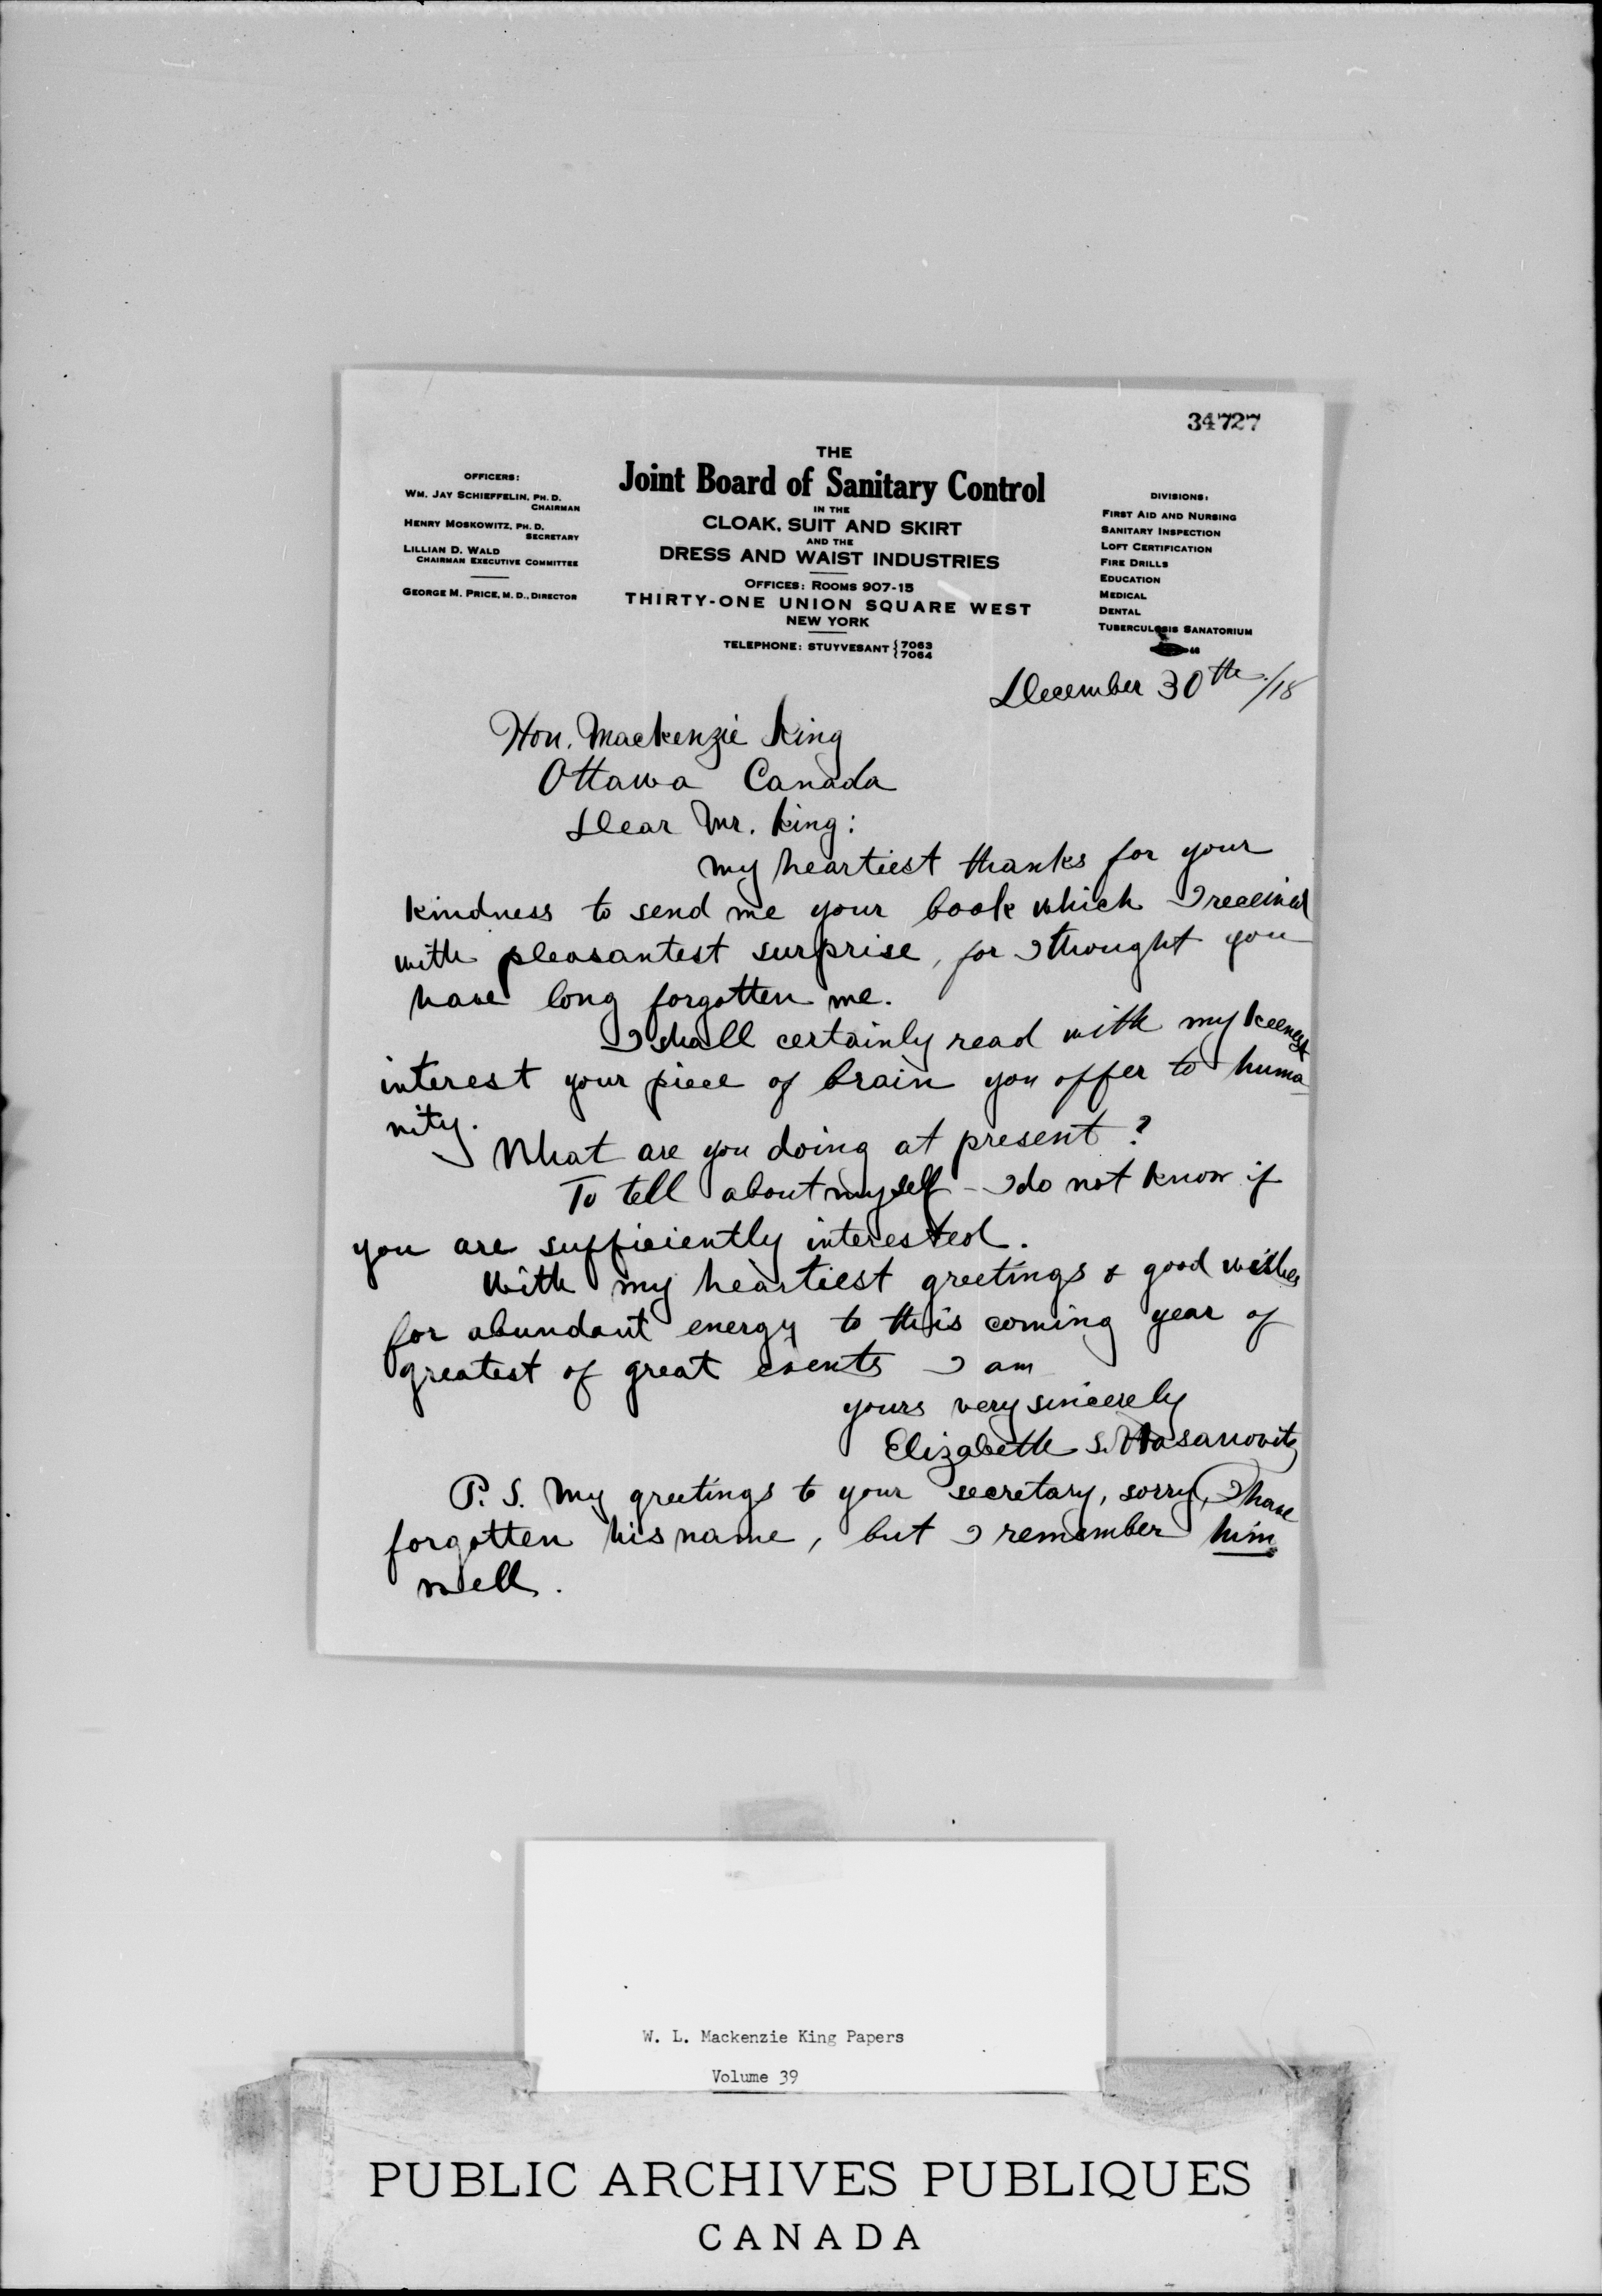 34727
THE
Joint Board of Sanitary Control
IN THE
CLOAK, SUIT AND SKIRT
AND THE
DRESS AND WAIST INDUSTRIES
OFFICES: ROOMS 907-15
THIRTY-ONE UNION SQUARE WEST
NEW YORK
TELEPHONE: STUYVESANT { 7063
{ 7064
OFFICERS:
WM. JAY SCHIEFFELIN, PH. D.
CHAIRMAN
HENRY MOSKOWITZ, PH. D.
SECRETARY
LILLIAN D. WALD
CHAIRMAN EXECUTIVE COMMITTEE
GEORGE M. PRICE, M. D., DIRECTOR
DIVISIONS:
FIRST AID AND NURSING
SANITARY INSPECTION
LOFT CERTIFICATION
FIRE DRILLS
EDUCATION
MEDICAL
DENTAL
TUBERCULOSIS SANATORIUM
December 30th/18
Hon. Mackenzie King
Ottawa Canada
Dear Mr. King:
My heartiest thanks for your
kindness to send me your book which I received
with pleasantest surprise, for I thought you
have long forgotten me.
I shall certainly read with my keenest
interest your piece of brain you offer to huma-
nity.
What are you doing at present?
To tell about myself - I do not know if
you are sufficiently interested.
With my heartiest greetings & good wishes
for abundant energy to this coming year of
greatest of great events I am
yours very sincerely
Elizabeth S. Hasanovitz
P. S. My greetings to your secretary, sorry, I have
forgotten his name, but I remember him
well.
W. L. Mackenzie King Papers
Volume 39
PUBLIC ARCHIVES PUBLIQUES
CANADA